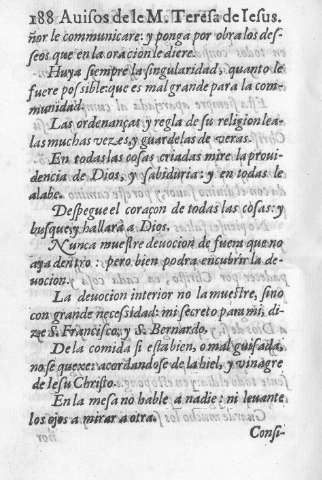 188 Avisos de le M. Teresa de Iesus.
ñor le communicare: y ponga por obra los des-
seos que en la oracion le diere.
Huya siempre la singularidad, quanto le
fuere possible: que es mal grande para la com-
munidad.
Las ordenanças y regla de su religion lea-
las muchas vezes, y guardelas de veras.
En todas las cosas criadas mire la proui-
dencia de Dios, y sabiduria: y en todas le
alabe.
Despegue el coraçon de todas las cosas: y
busque, y hallarà a Dios.
Nunca muestre deuocion de fuera que no
aya dentro: pero bien podra encubrir la de-
uocion.
La deuocion interior no la muestre, sino
con grande necessidad: mi secreto para mi, di-
ze S. Francisco, y S. Bernardo.
De la comida si esta bien, o mal guisada,
no se quexe: acordandose de la hiel, y vinagre
de Iesu Christo.
En la mesa no hable a nadie: ni leuante
los ojos a mirar a otra.
Consi-